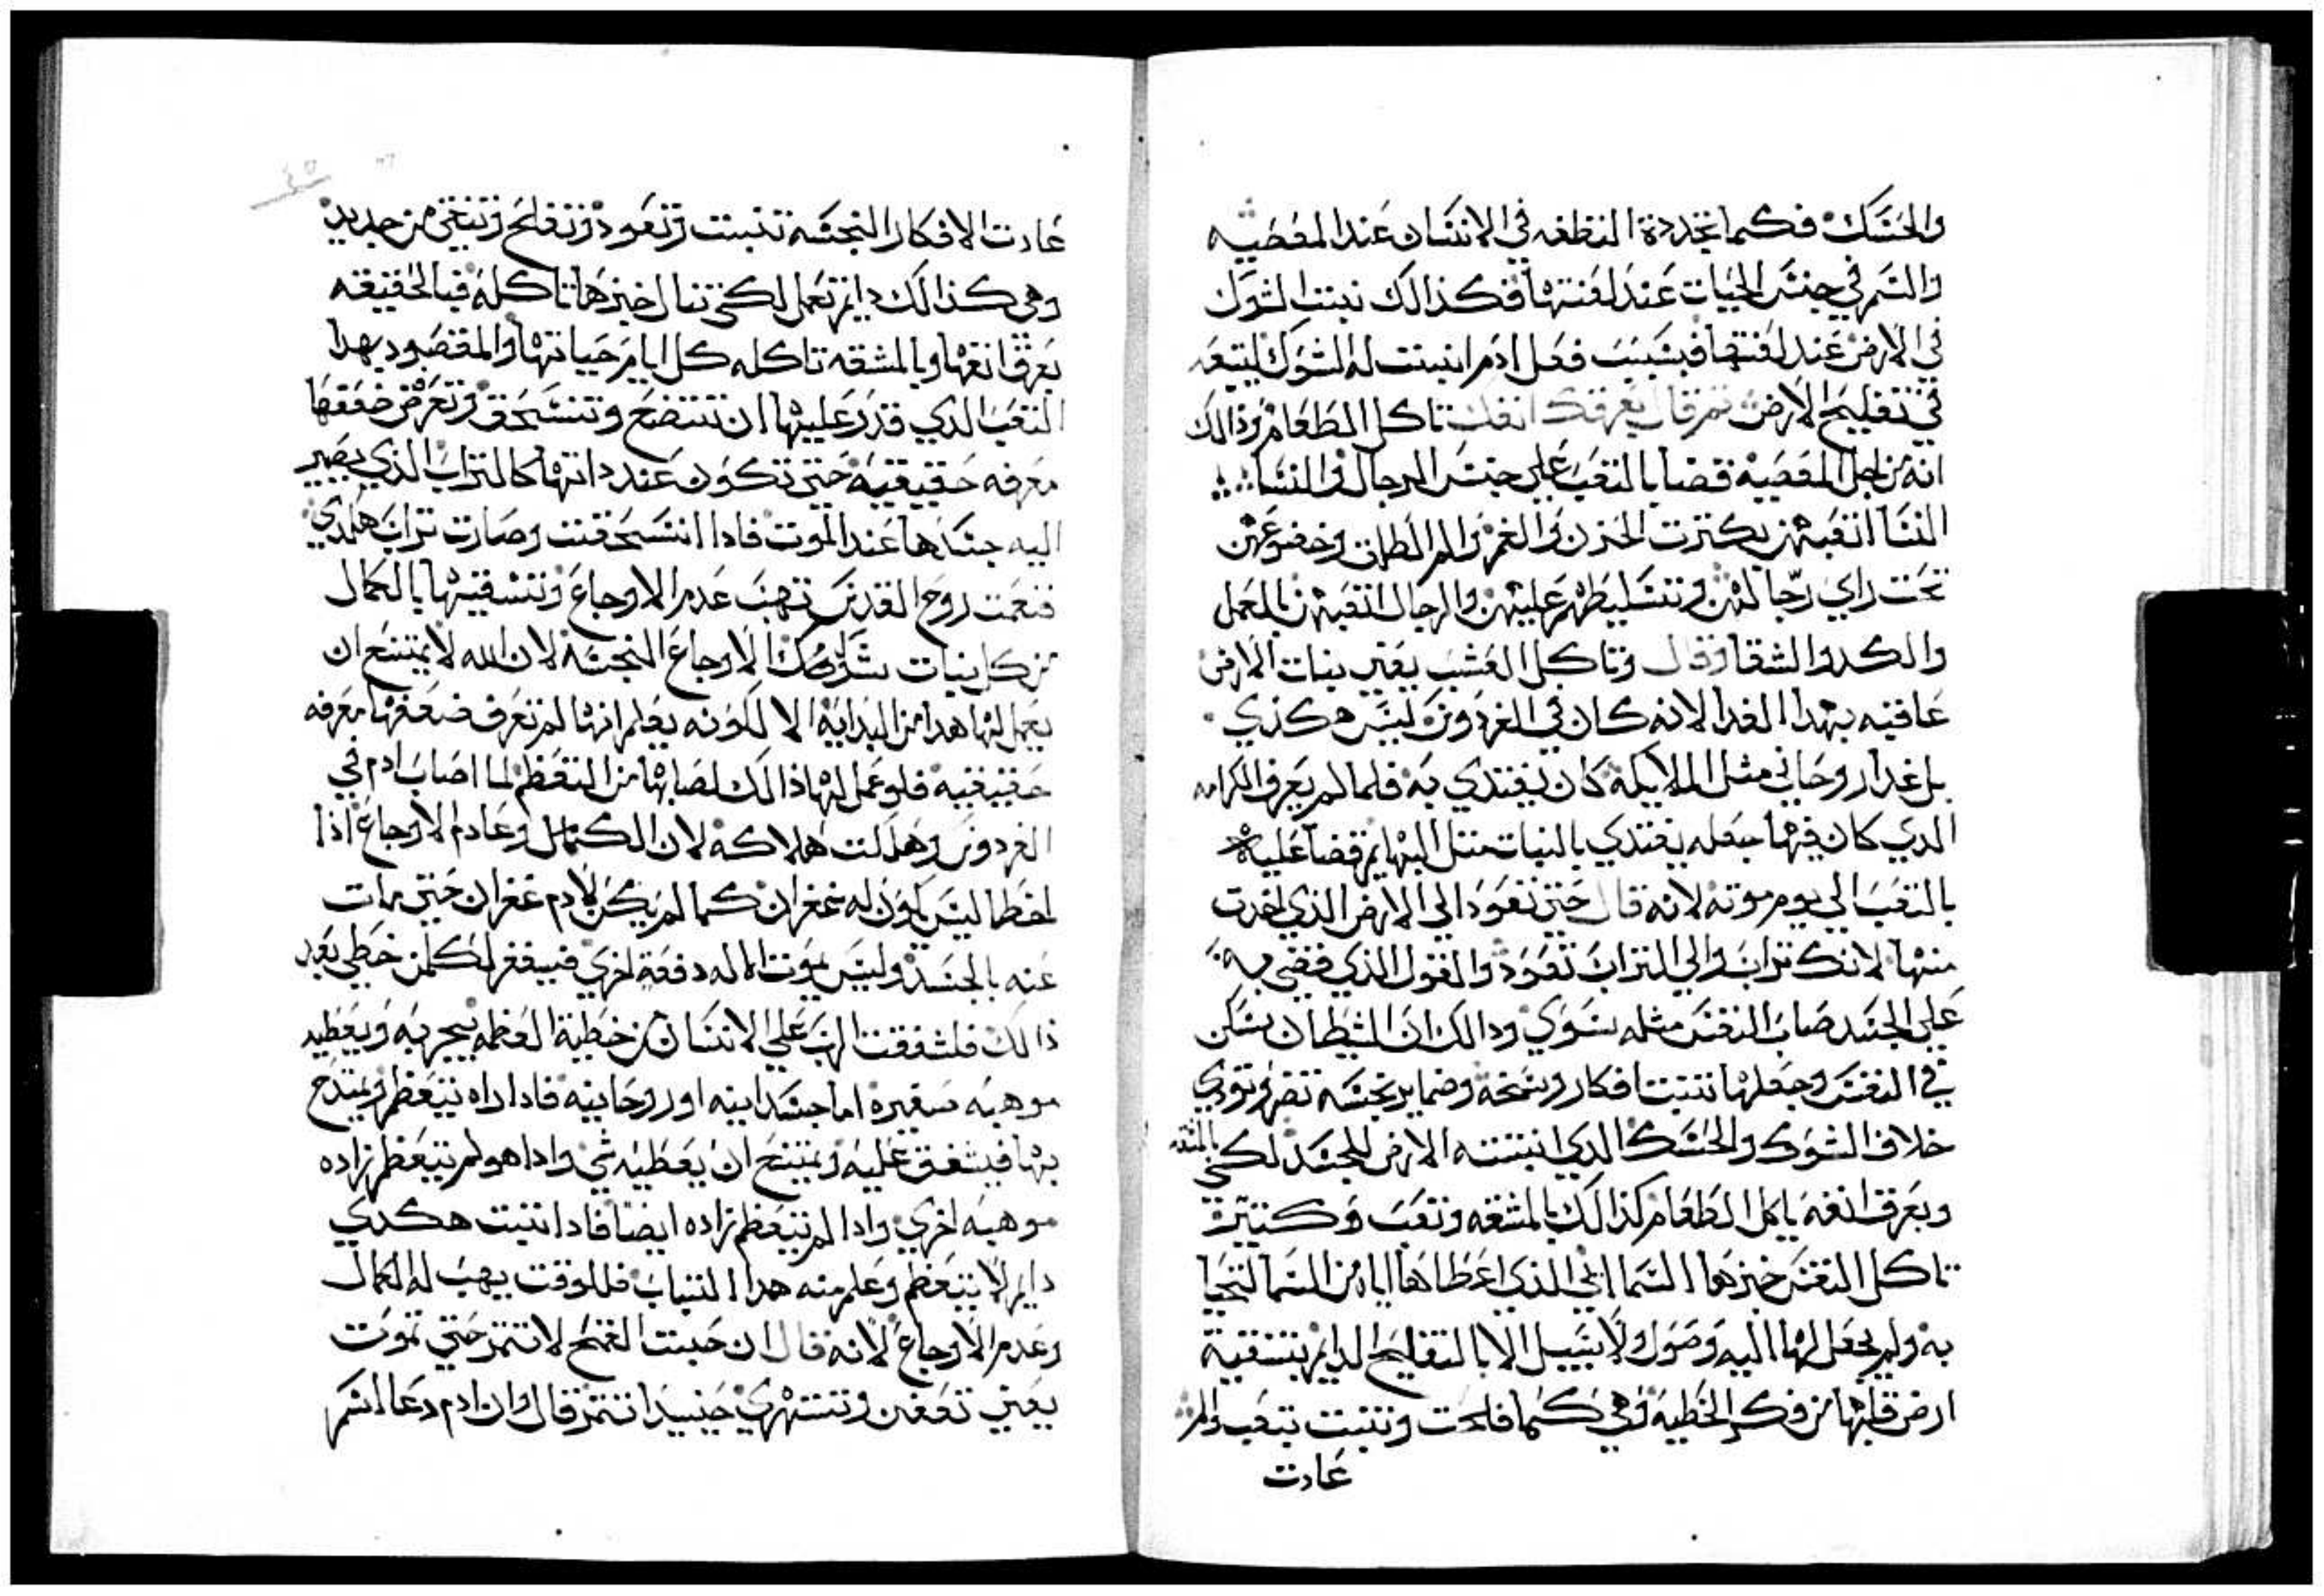 والحسك فكما تجددة النطفه في الانسان عند المعصيه
والسم في جنس الحيات عند لعنتها فكذالك نبت الشوك
في الارض عند لعنتها فبسبب فعل ادم انبتت له الشوك ليتعب
في تفليح الارض ثم قال بعرقة انفك تاكل الطعام وذالك
انه من اجل المعصيه قضا بالتعب علي جنس الرجال والنسا
النسا اتعبهن بكترت الحزن والغم والم الطلق وخضوعهن
تحت راي رجالهن وتسليطهم عليهن والرجال اتعبهن بالعمل
والكد والشقا وقال وتاكل العشب يعني نبات الارض
عاقبه بهدا الغدا لانه كان في الفردوس ليس هكذي
بل غدا روحاني مثل الملايكة كان يغتدي به فلما لم يعرف الكرامه
الدي كان فيها جعله يغتدي بالنبات متل البهايم قضا عليه
بالتعب الي يوم موته لانه قال حتي تعود الي الارض الذي اخدت
منها لانك تراب والي التراب تعود والقول الذي قضي به
علي الجسد صاب النفس مثله بسوي ودالك ان الشيطان سكن
في النفس وجعلها تنبت افكار وسخة وضماير نجسة تضر وتودي
خلاف الشوك والحسك الدي انبتته الارض للجسد لكي بالمشقه
وبعرق انفه ياكل الطعام كذالك بالمشقه وتعب وكتير
تاكل النفس خبزها السماايي الذي اعطاها اياه من السما لتحيا
به ولم يجعل لها اليه وصول ولا سبيل الا بالتفليح الدايم بتنقية
ارض قلبها من فكر الخطية وهي كما فلحت ونبت بتعب والم
عادت
عادت الافكار النجسه تنبت وتعود وتفلح وتنقي من جديد
وهي كذالك دايم تعمل لكي تنال خبزها تاكله فبالحقيقه
بعرق انفها وبالمشقه تاكله كل ايام حياتها والمقصود بهدا
التعب الدي قدر عليها ان تتضع وتنسحق وتعرف ضعفها
معرفه حقيقيه حتي تكون عند داتها كالتراب الذي يصير
اليه جسدها عند الموت فادا انسحقت وصارت تراب هكدي
فنعمت روح القدس تهب عدم الاوجاع وتسقيها بالكمال
من كل نبات شوك الاوجاع النجسه لان الله لا يمتنع ان
يعمل لها هدا من البداية الا لكونه يعلم انها لم تعرف ضعفها معرفه
حقيقيه فلو عمل لها ذالك لصابها من التعظم لما اصاب ادم في
الفردوس وهلكت هلاكه لان الكامل وعادم الاوجاع اذا
اخطا ليس يكون له غفران كما لم يكن لادم غفران حتي مات
عنه بالجسد وليس يموت الاله دفعة اخري فيغفر لكلمن خطي بعد
ذالك فلشفقت الرب علي الانسان من خطية العظمه يجربه ويعطيه
موهبه صغيره اما جسدانيه او روحانيه فادا راه يتعظم ويمتدح
بها فيشفق عليه ويمتنع ان يعطيه شي وادا هو لم يتعظم زاده
موهبه اخري وادا لم يتعظم زاده ايضا فادا تبت هكدي
دايم لا يتعظم وعلم منه هدا التبات فللوقت يهب له الكمال
وعدم الاوجاع لانه قال ان حبت القمح لا تتمر حتي تموت
يعني تتعفن وتستهري حينيد تتمر قال وان ادم دعا اسم